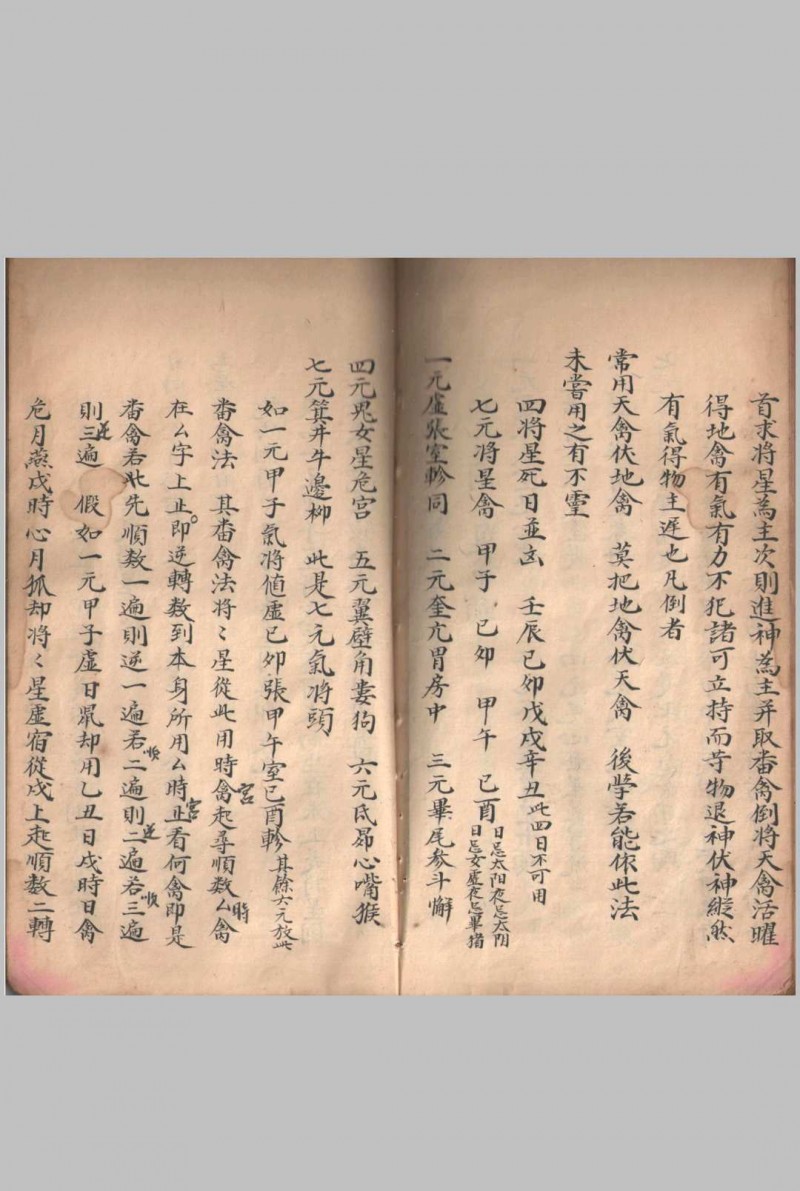 首求將星為主次則進神為主并取畨禽倒將天禽活曜
得地禽有氣有力不犯諸可立持而等物退神伏神縱然
有氣得物主遲也凡倒者
常用天禽伏地禽　莫把地禽伏天禽　後學若能依此法
未嘗用之有不靈
四將星死日並凶　壬辰己卯戊戌辛丑此四日不可用
七元將星禽　甲子　己卯　甲午　己酉日忌太阳夜忌太阴日忌女虛夜忌畢猪
一元虛張室軫同　二元奎亢胃房中　三元畢尾參斗懈
四元鬼女星危宮　五元翼壁角婁狗　六元氐昴心嘴猴
七元箕井牛邊柳　此是七元氣將頭
如一元甲子氣將值虛己卯張甲午室己酉軫其餘六元放此
畨禽法　其畨禽法將〻星從此用時禽宮起尋順数厶時禽
在厶字上止。即逆轉数到本身所用厶時宮止看何禽即是
畨禽若此先順数一遍則逆一遍若順二遍則逆二遍若順三遍
則逆三遍　假如一元甲子虛日鼠却用乙丑日戌時日禽
危月燕戌時心月狐却將〻星虛宿從戌上起順数二轉